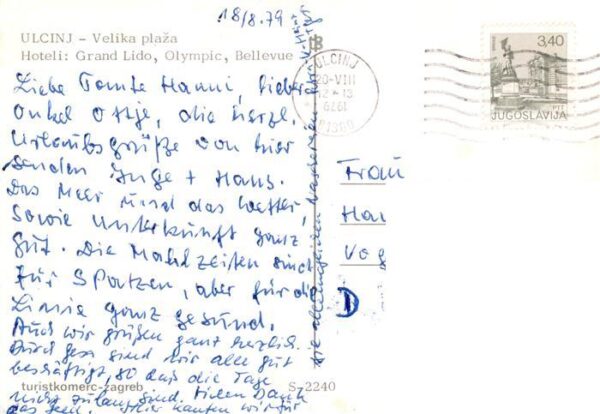 18/8.79
ULCINJ – Velika plaža
Hoteli: Grand Lido, Olympic, Bellevue
3,40
PTT
JUGOSLAVIJA
ULCINJ
20-VIII
12-13
1979
Liebe Tante Hanni, lieber
Onkel Ottje, die herzl.
Urlaubsgrüße von hier
senden Inge + Hans.
Das Meer und das Wetter,
sowie Unterkunft ganz
gut. Die Mahlzeiten sind
für Spatzen, aber für die
Linie ganz gesund.
Auch wir grüßen ganz herzlich.
sind wir alle gut
beschäftigt, so daß die Tage
nicht zu lang sind. Vielen Dank
wir für
Frau
Han
Vog
D
turistkomerc-zagreb
S-2240